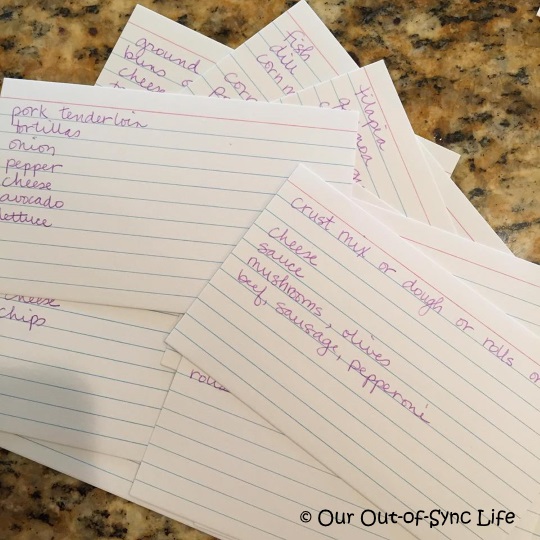 ground
buns
cheese
Fish
dill
corn
tilapia
pork tenderloin
tortillas
onion
pepper
cheese
avocado
lettuce
crust mix or dough or rolls or
cheese
sauce
mushrooms, olives
beef, sausage, pepperoni
cheese
chips
rolls
© Our Out-of-Sync Life